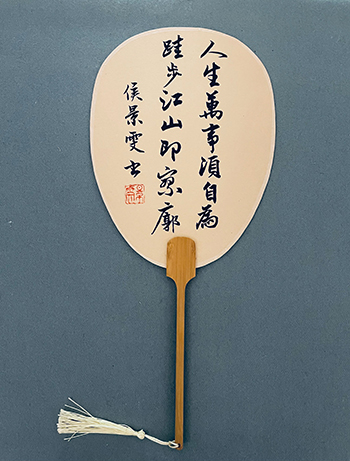 人生萬事須自為
跬步江山即寥廓
侯景雯书